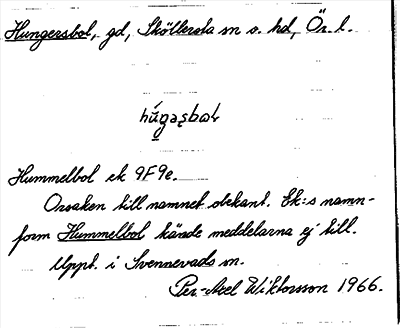 Hungersbol, gd, Sköllersta sn o. hd, Ör. l.
húgaşboɫ
Hummelbol ek 9F9e.
Orsaken till namnet obekant. Ek:s namn-
form Hummelbol kände meddelarna ej till.
Uppt. i Svennevads sn.
Per-Axel Wiktorsson 1966.